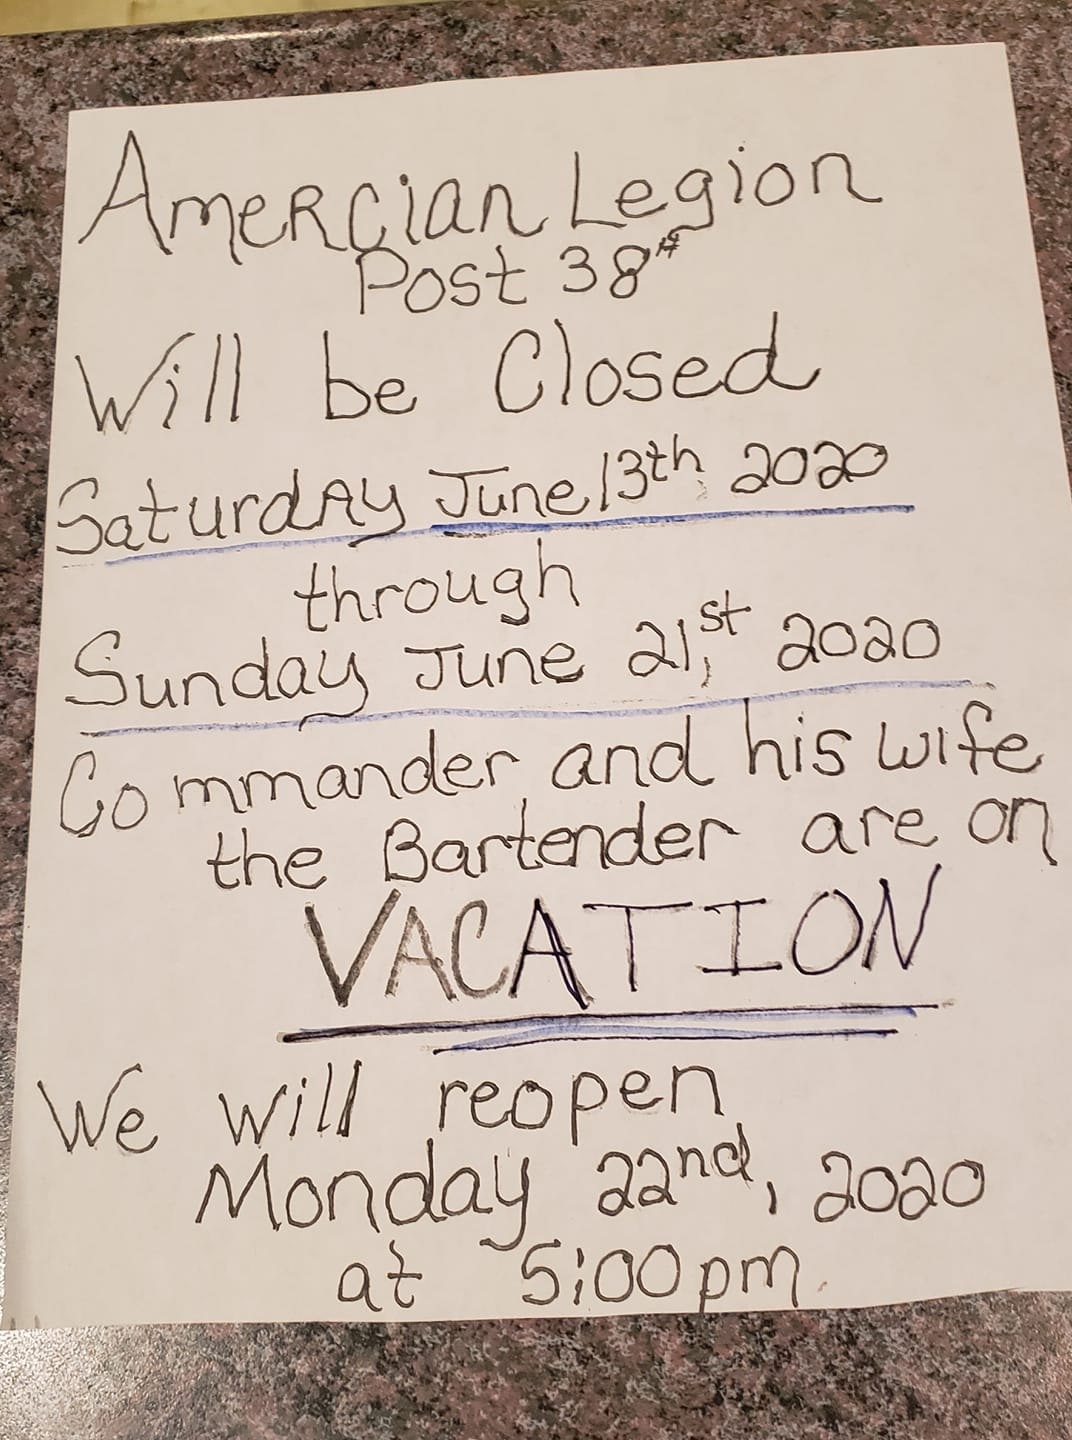 Amercian Legion
Post 38#
Will be Closed
Saturday June 13th, 2020
through
Sunday June 21,st 2020
Commander and his wife
the Bartender are on
VACATION
We will reopen
Monday 22nd, 2020
at 5:00pm.